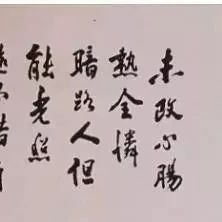 未改心腸
熱全憐
暗路人但
能光照